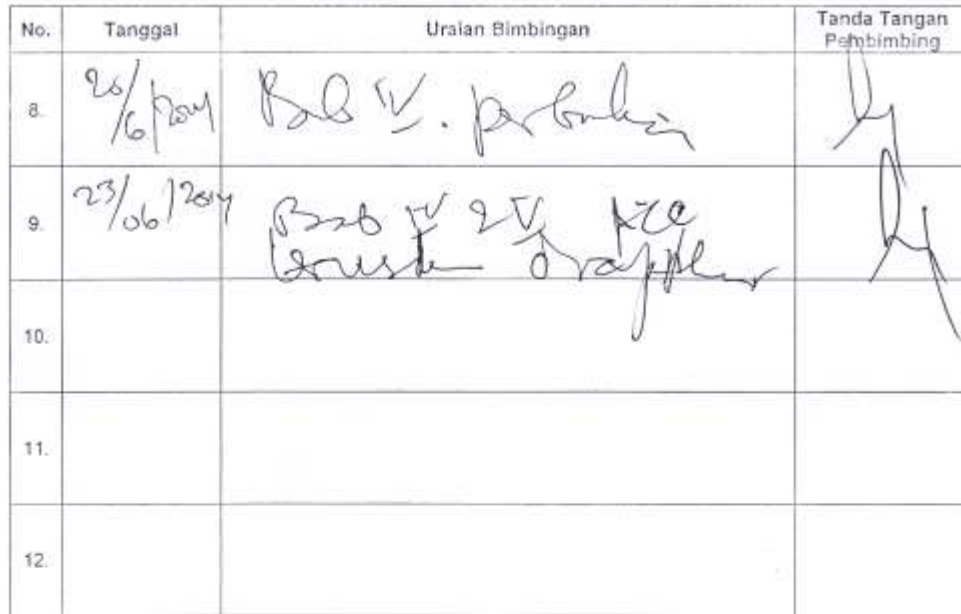 No. Tanggal Uraian Bimbingan Tanda Tangan
Pembimbing
8. 20/6/2014 Bab IV. perbaikan
9. 23/06/2014 Bab IV & V, ACC
10.
11.
12.